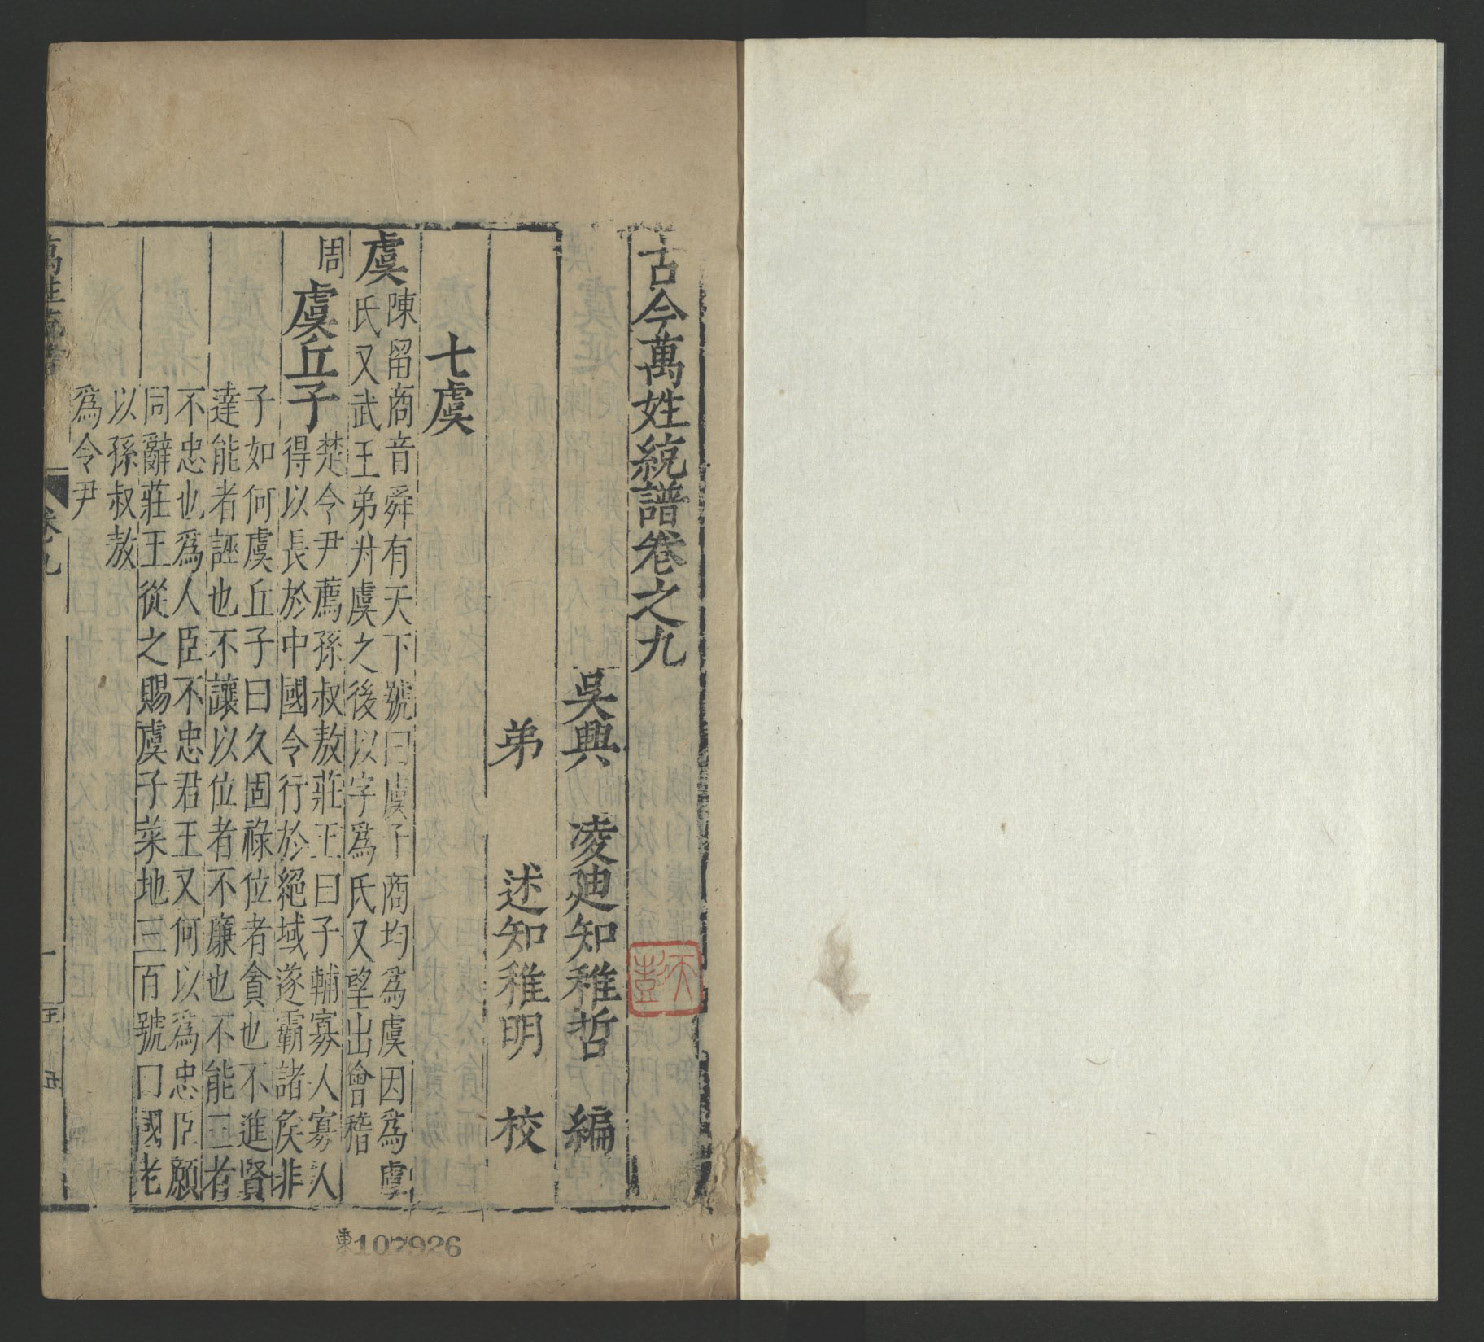 古今萬姓統譜卷之九
吳興 凌迪知稚哲 編
弟 述知稚明 校
七虞
虞
陳留商音舜有天下號曰虞子商均爲虞因爲虞
氏又武王弟虞之後以字爲氏又望出會稽
周
虞丘子
楚令尹薦孫叔敖莊王曰子輔寡人寡人
得以長於中國令行於絕域遂霸諸侯非
子如何虞丘子曰久固祿位者貪也不進賢
達能者誣也不讓以位者不廉也不能三者
不忠也爲人臣不忠君王又何以爲忠臣願
同辭莊王從之賜虞子菜地三百號曰國老
以孫叔敖
爲令尹
卷九
一
東107926